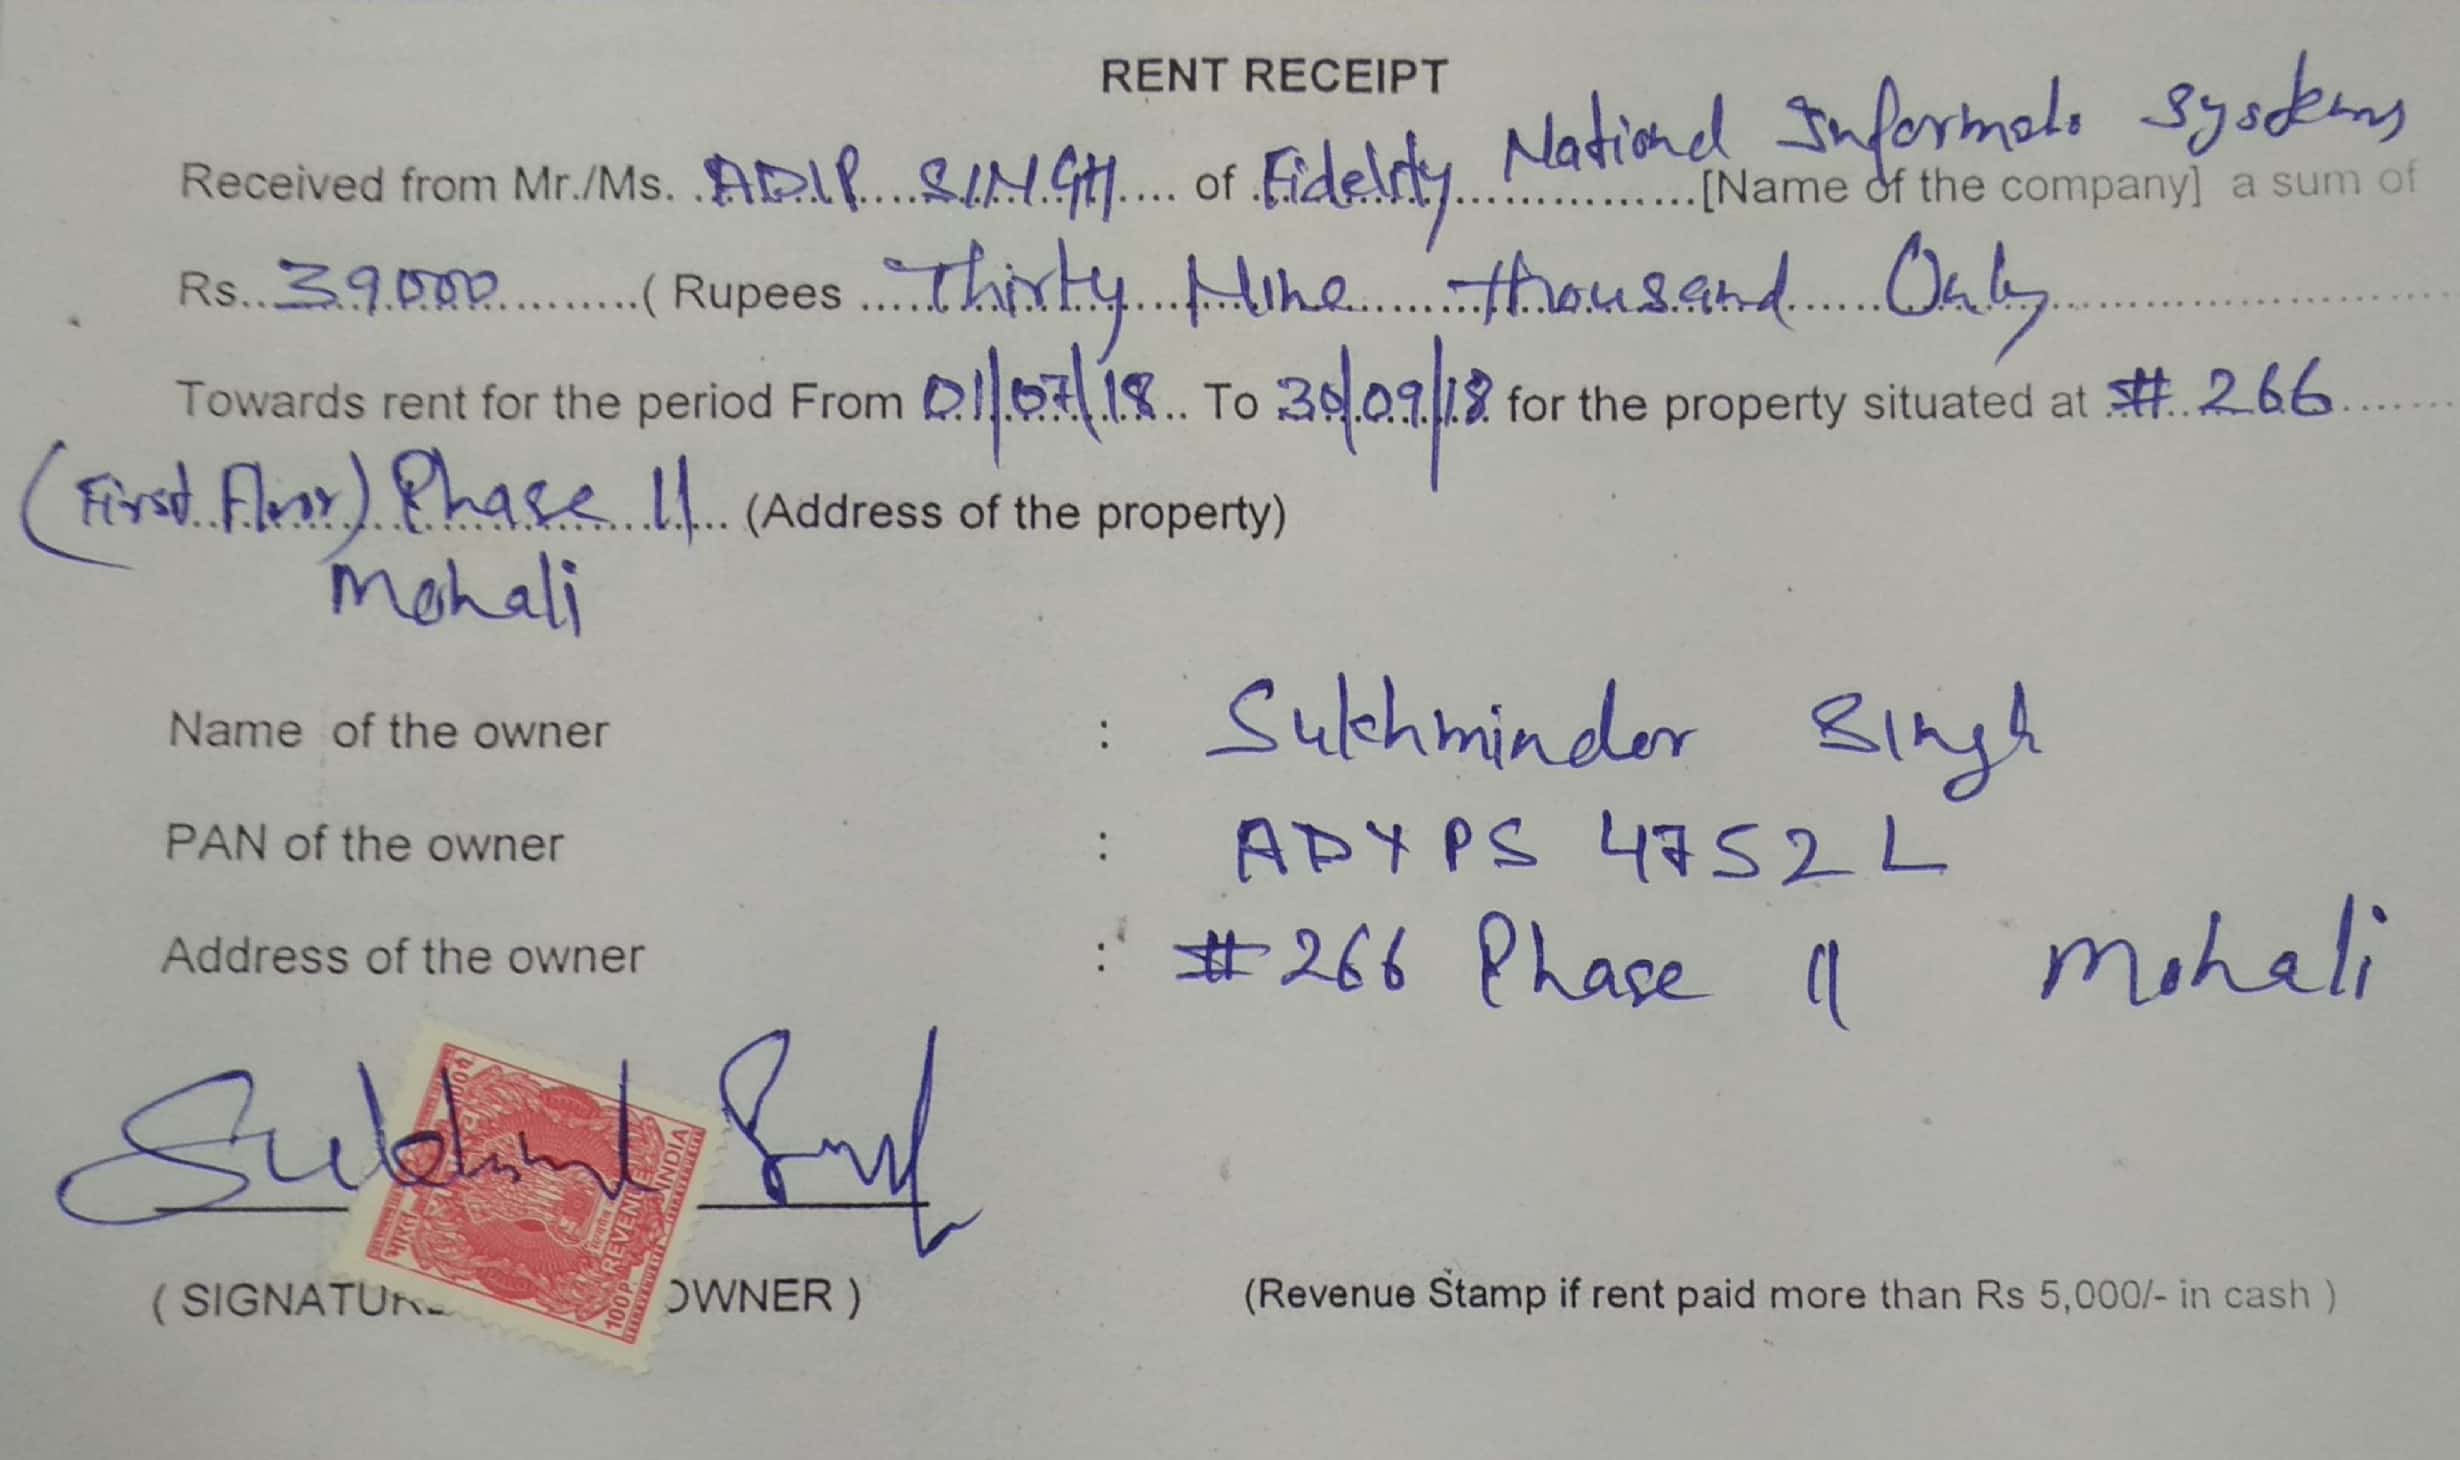 RENT RECEIPT
Received from Mr./Ms. ADIP SINGH of Fidelity National Informato Systems [Name of the company] a sum of
Rs. 39000 ( Rupees Thirty Nine thousand Only
Towards rent for the period From 01/07/18 To 30/09/18 for the property situated at # 266
(First Floor) Phase 11 (Address of the property)
Mohali
Name of the owner : Sukhminder Singh
PAN of the owner : ADYPS 4752 L
Address of the owner : # 266 Phase 11 Mohali
REVENUE INDIA
100 P.
( SIGNATURE OWNER )
(Revenue Stamp if rent paid more than Rs 5,000/- in cash )